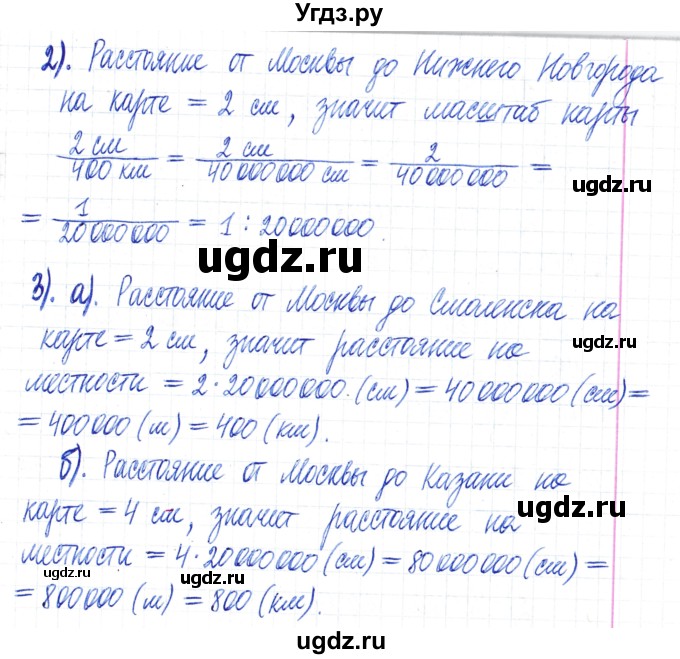 Угдз.ру
2). Расстояние от Москвы до Нижнего Новгорода
на карте = 2 см, значит масштаб карты
2 см / 400 км = 2 см / 40 000 000 см = 2 / 40 000 000 =
ugdz.ru
= 1 / 20 000 000 = 1 : 20 000 000.
ugdz.ru
3). а). Расстояние от Москвы до Смоленска на
ugdz.ru
карте = 2 см, значит расстояние на
местности = 2 · 20 000 000 (см) = 40 000 000 (см) =
= 400 000 (м) = 400 (км).
ugdz.ru
б). Расстояние от Москвы до Казани на
карте = 4 см, значит расстояние на
ugdz.ru
местности = 4 · 20 000 000 (см) = 80 000 000 (см) =
ugdz.ru
= 800 000 (м) = 800 (км).
ugdz.ru
ugdz.ru